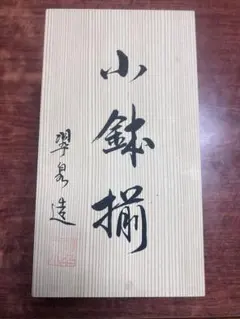 小鉢揃
翠泉造